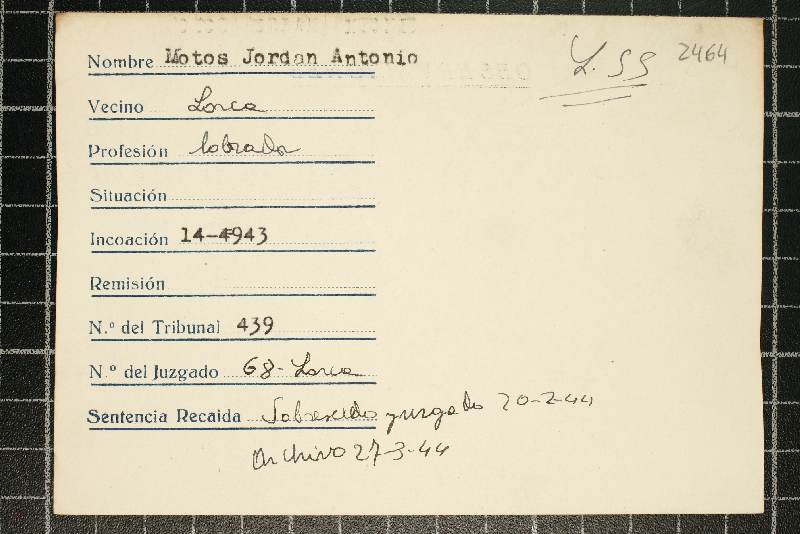 Nombre Motos Jordan Antonio
L. 55 2464
Vecino Lorca
Profesión labrador
Situación
Incoación 14-4943
Remisión
N.º del Tribunal 439
N.º del Juzgado 68-Lorca
Sentencia Recaida Sobreseido juzgado 20-2-44
Archivo 27-3-44